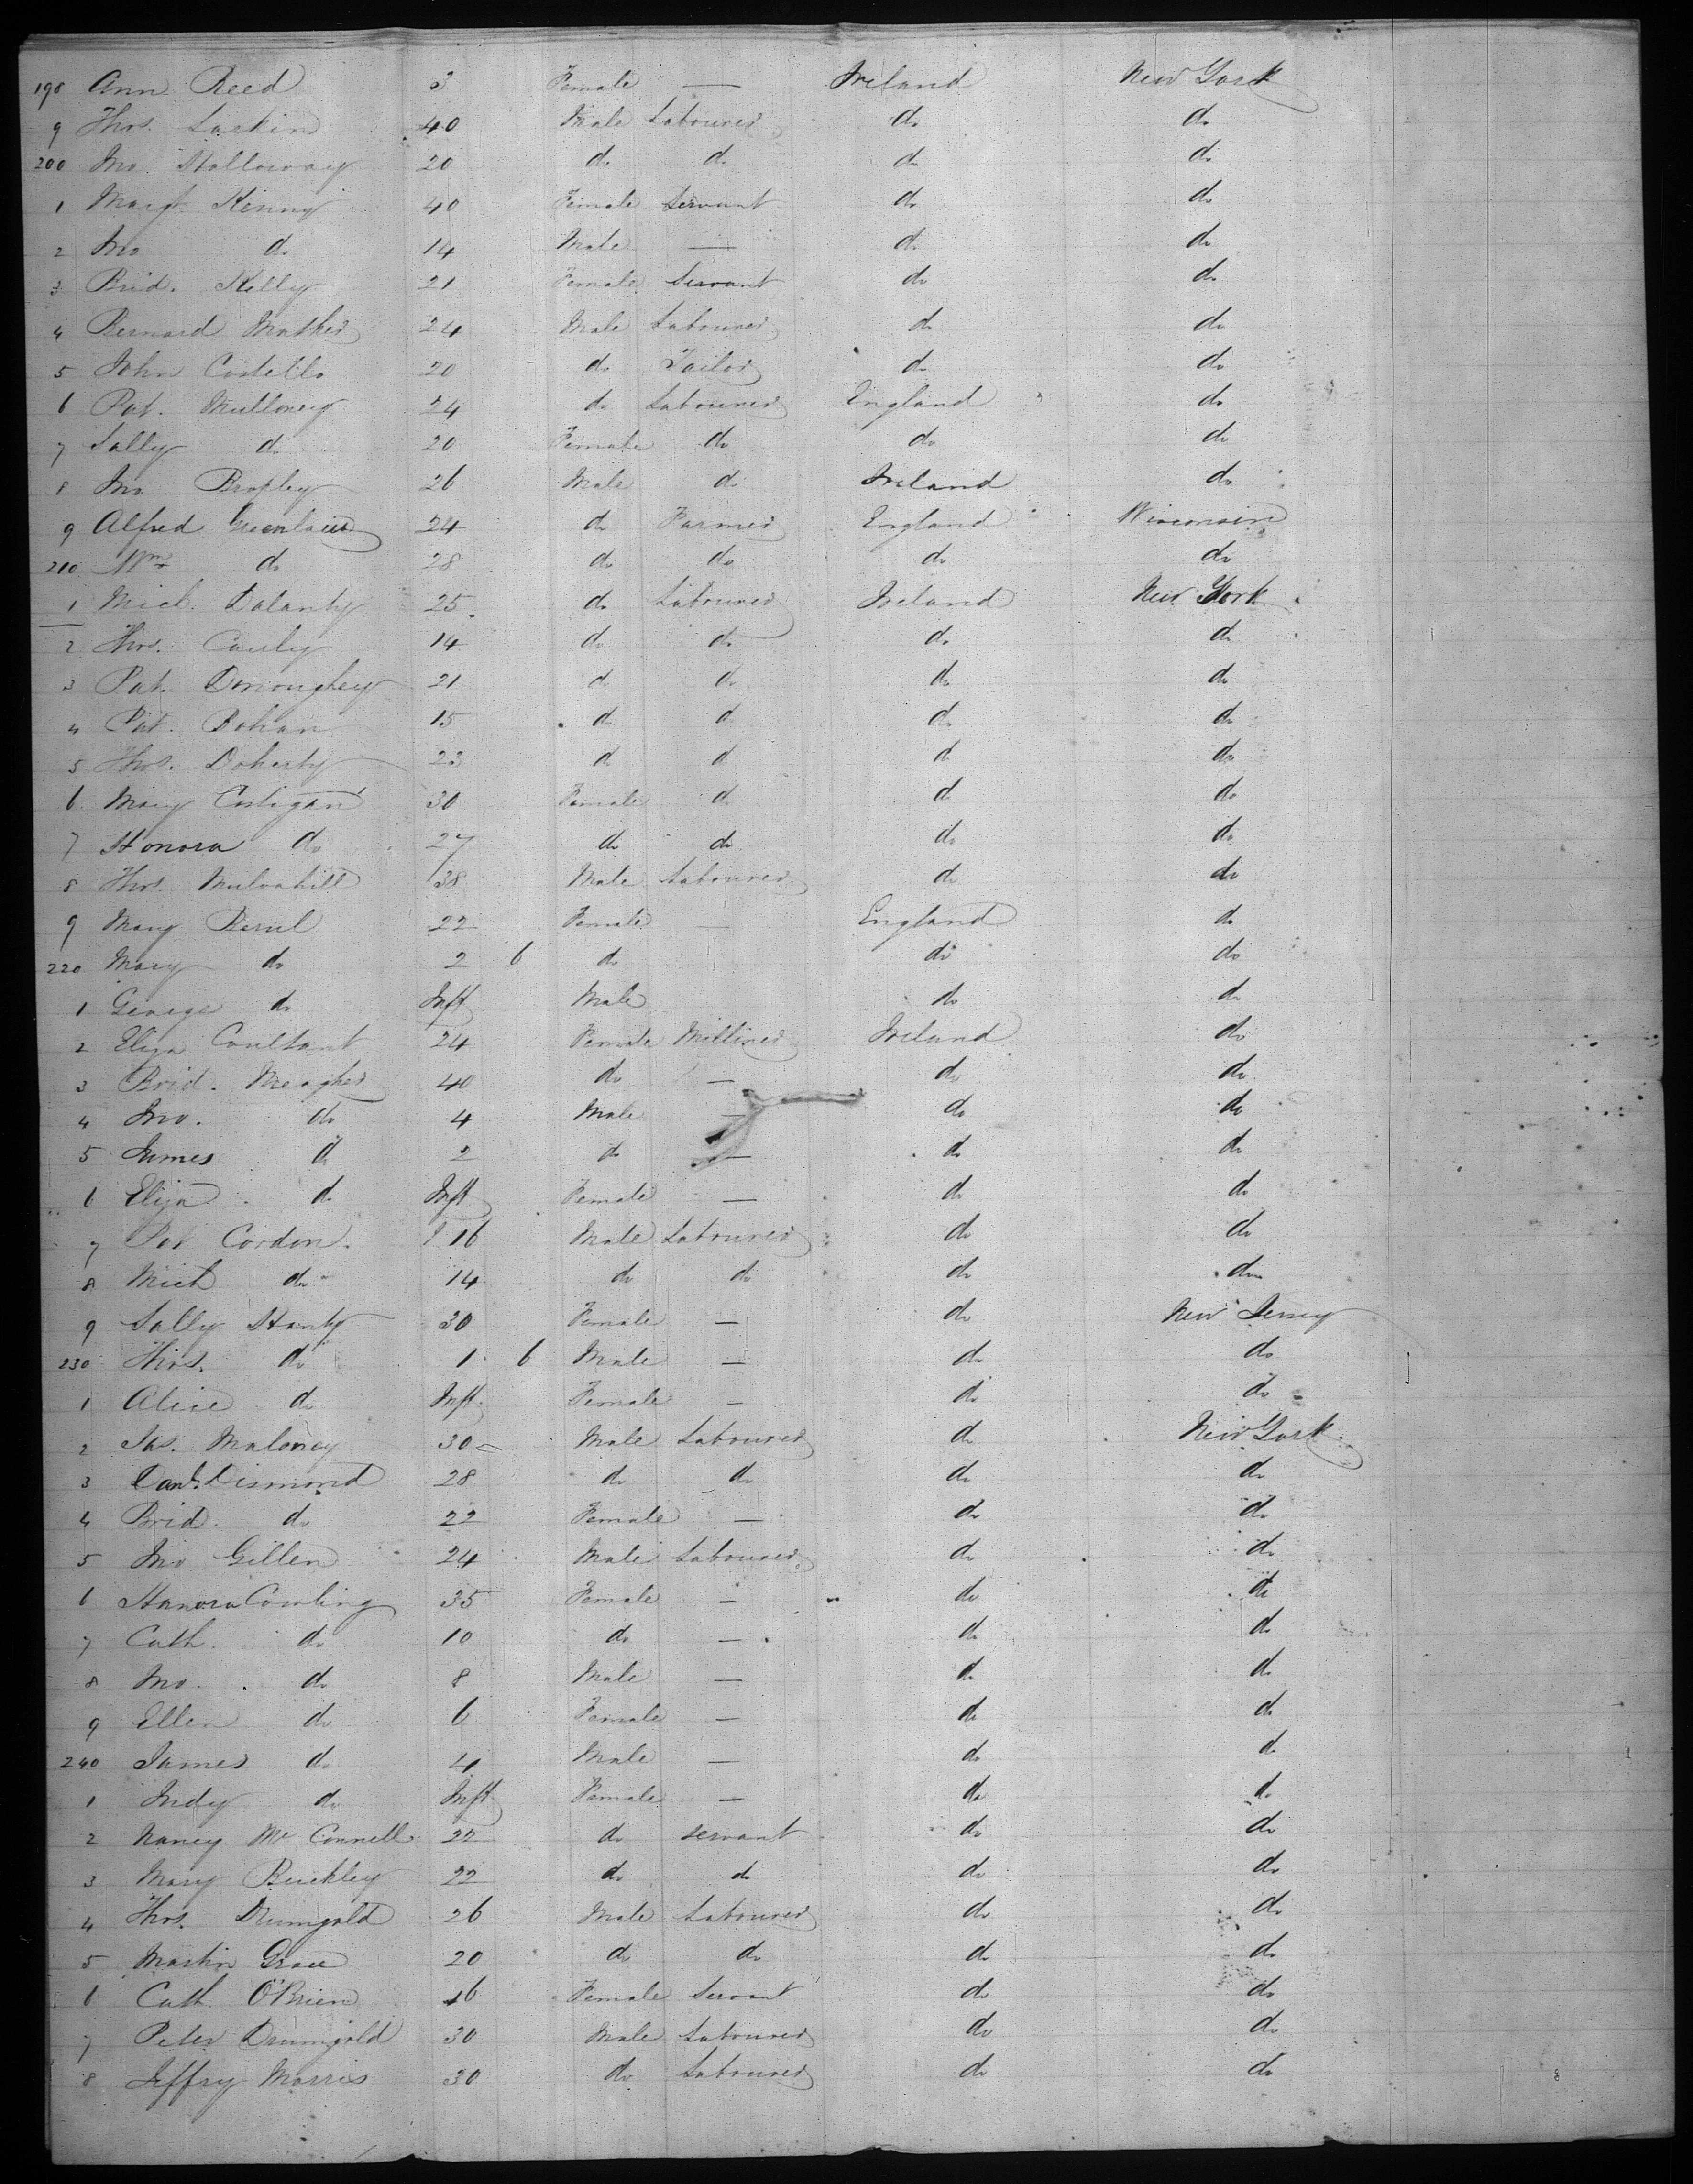 198 Ann Reed 3 Female — Ireland New York
9 Thos. Larkin 40 Male Labourer do do
200 Jno. Holloway 20 do do do do
1 Margt. Kenny 40 Female Servant do do
2 Jno do 14 Male — do do
3 Brid. Kelly 21 Female Servant do do
4 Bernard Mather 24 Male Labourer do do
5 John Costello 20 do Tailor do do
6 Pat. Mulloney 24 do Labourer England do
7 Sally do 20 Female do do do
8 Jno. Brophy 26 Male do Ireland do
9 Alfred 24 do Farmer England Wisconsin
210 Wm do 28 do do do do
1 Mich. Dalanty 25 do Labourer Ireland New York
2 Thos. Cauly 14 do do do do
3 Pat. Donoughey 21 do do do do
4 Pat. Bohan 15 do do do do
5 Thos. Doherty 23 do do do do
6 Mary Costigan 30 Female do do do
7 Honora do 27 do do do do
8 Thos. Mulvahill 38 Male Labourer do do
9 Mary 22 Female — England do
220 Mary do 2 6 do do do
1 George do Inft Male do do
2 Eliza Coultant 24 Female Milliner Ireland do
3 Brid. Meagher 40 do — do do
4 Jno. do 4 Male — do do
5 James do 2 do — do do
6 Eliza do Inft Female — do do
7 Pat Cordon. 16 Male Labourer do do
8 Mich do 14 do do do do
9 Sally Hanty 30 Female — do New Jersey
230 Thos. do 1 6 Male — do do
1 Alice do Inft. Female — do do
2 Jas. Maloney 30 Male Labourer do New York
3 Danl. Dismond 28 do do do do
4 Brid. do 22 Female — do do
5 Jno Gillen 24 Male Labourer do do
6 Hanora Cowling 35 Female — do do
7 Cath. do 10 do — do do
8 Jno. do 8 Male — do do
9 Ellen do 6 Female — do do
240 James do 4 Male — do do
1 Indy do Inft Female — do do
2 Nancy Mc Connell 22 do servant do do
3 Mary Buckley 22 do do do do
4 Thos. Drumgold 26 Male Labourer do do
5 Martin Grace 20 do do do do
6 Cath. O'Brien 16 Female Servant do do
7 Peter Drumgold 30 Male Labourer do do
8 Jeffry Morris 30 do Labourer do do